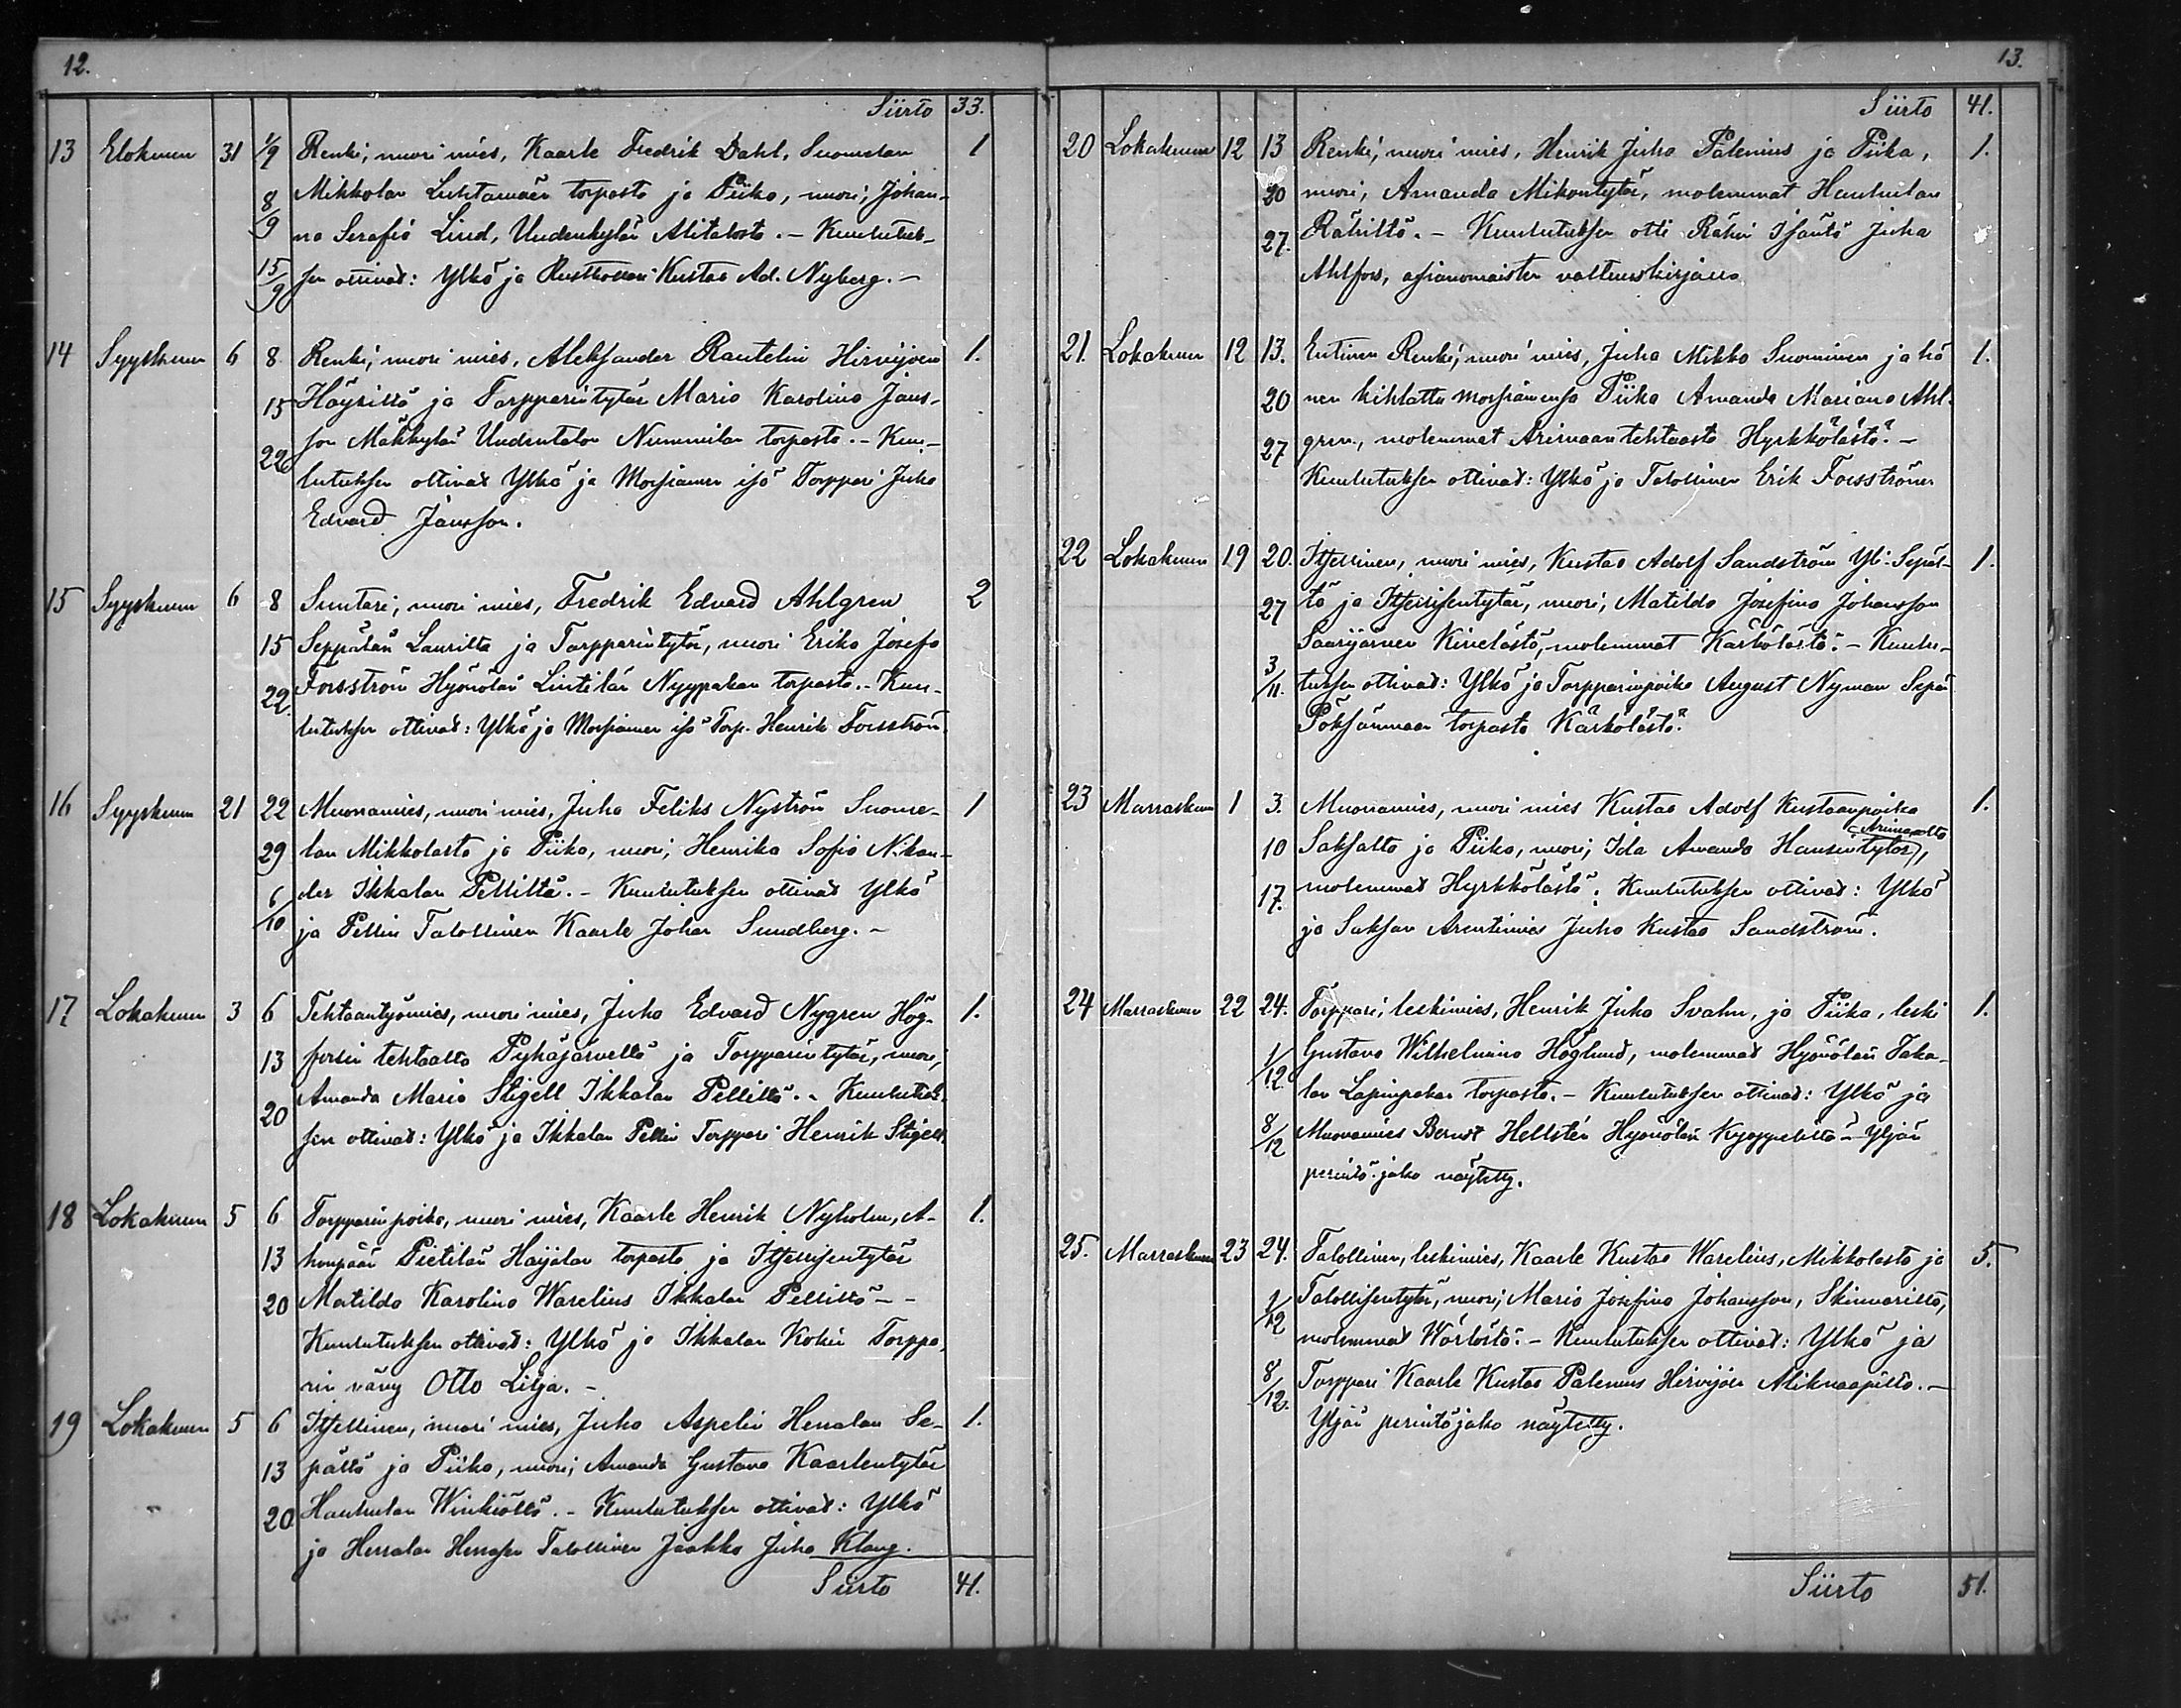 12.
Siirto 33.
13 Elokuun 31 1/9 Renki, nuori mies, Kaarle Fredrik Dahl, Suomelan 1
8/9 Mikkolan Luhtamäen torpasta ja Piika, nuori, Johan-
na Serafia Lind, Uudenkylän Alitalosta. - Kuulutuk-
15/9 sen ottivat: Ylkä ja Rusthollari Kustaa Ad. Nyberg. -
14 Syyskuun 6 8 Renki, nuori mies, Aleksander Rautelin Hirvijoen 1.
15 Häyrillä ja Torpparintytär Maria Karolina Jans-
son Mäkkylän Uudentalon Nummilan torpasta. - Kuu-
22 lutuksen ottivat Ylkä ja Morsiamen isä Torppari Juha
Edvard Jansson.
15 Syyskuun 6 8 Suutari, nuori mies, Fredrik Edvard Ahlgren 2
15 Seppälän Laurilta ja Torpparintytär, nuori Erika Josefa
Forsström Hyönölän Lintilän Nyypakan torpasta. - Kuu-
22. lutuksen ottivat: Ylkä ja Morsiamen isä Torp. Henrik Forsström.
16 Syyskuun 21 22 Muonamies, nuori mies, Juha Feliks Nyström Suome- 1
29 lan Mikkolasta ja Piika, nuori, Henrika Sofia Nikan-
6/10 der Ikkalan Pelliltä. - Kuulutuksen ottivat Ylkä
ja Pellin Talollinen Kaarle Johan Sundberg. -
17 Lokakuun 3 6 Tehtaantyömies, nuori mies, Juha Edvard Nygren Hög- 1.
13 forsin tehtaalta Pyhäjärveltä ja Torpparintytär, nuori,
Amanda Maria Stigell Ikkalan Pelliltä. - Kuulutuk-
20 sen ottivat: Ylkä ja Ikkalan Pellin Torppari Henrik Stigell.
18 Lokakuun 5 6 Torpparinpoika, nuori mies, Kaarle Henrik Nyholm, A- 1.
13 honpään Pietilän Haijalan torpasta ja Itsellisentytär
20 Matilda Karolina Warelius Ikkalan Pelliltä - -
Kuulutuksen ottivat: Ylkä ja Ikkalan Kokin Torppa-
rin vävy Otto Lilja. -
19 Lokakuun 5 6 Itsellinen, nuori mies, Juha Aspelin Herralan Se- 1.
13 pältä ja Piika, nuori, Amanda Gustava Kaarlentytär
20 Hauhulan Winkiöltä. - Kuulutuksen ottivat: Ylkä
ja Herralan Talollinen Jaakko Juha Klang.
Siirto 41.
13.
Siirto 41.
20 Lokakuun 12 13 Renki, nuori mies, Henrik Juha Palenius ja Piika, 1.
20 nuori, Amanda Mikontytär, molemmat Hauhulan
27. Rähiltä. - Kuulutuksen otti Rähin Isäntä Juha
Ahlfors, asianomaisten valtuuskirjalla.
21. Lokakuun 12 13. Entinen Renki, nuori mies, Juha Mikko Suominen ja hä 1.
20 nen kihlattu morsiamensa Piika Amanda Mariana Ahl-
27 gren, molemmat Arimaan tehtaasta Hyrkkölästä. -
Kuulutuksen ottivat: Ylkä ja Talollinen Erik Forsström
22 Lokakuun 19 20. Itsellinen, nuori mies, Kustaa Adolf Sandström Yli-Sepäl- 1.
27 tä ja Itsellisentytär, nuori, Matilda Josefina Johansson
Saarijärven Kinelästä, molemmat Kärkölästä. - Kuulu-
3/11. tuksen ottivat: Ylkä ja Torpparinpoika August Nyman Sepän
Pöksänmaan torpasta Kärkölästä.
23 Marraskuun 1 3. Muonamies, nuori mies Kustaa Adolf Kustaanpoika 1.
Arimaalta
10 Saksalta ja Piika, nuori, Ida Amanda Hansintytär,
17. molemmat Hyrkkölästä. Kuulutuksen ottivat: Ylkä
ja Saksan Arentimies Juha Kustaa Sandström.
24 Marraskuun 22 24. Torppari, leskimies, Henrik Juha Svahn, ja Piika, leski 1.
1/12. Gustava Wilhelmina Höglund, molemmat Hyönölän Jaka-
lan Lapinpakan torpasta. - Kuulutuksen ottivat: Ylkä ja
8/12 Muonamies Berndt Hellstén Hyönölän Kyöppelistä - Yljän
perintö-jako näytetty.
25. Marraskuun 23 24. Talollinen, leskimies, Kaarle Kustaa Warelius, Mikkolasta ja 5.
1/12 Talollisentytär, nuori, Maria Josefina Johansson, Skinnarilta,
molemmat Wörlöstä. - Kuulutuksen ottivat: Ylkä ja
8/12. Torppari Kaarle Kustaa Palenius Hirvijoen Aliknaapilta. -
Yljän perintöjako näytetty.
Siirto 51.